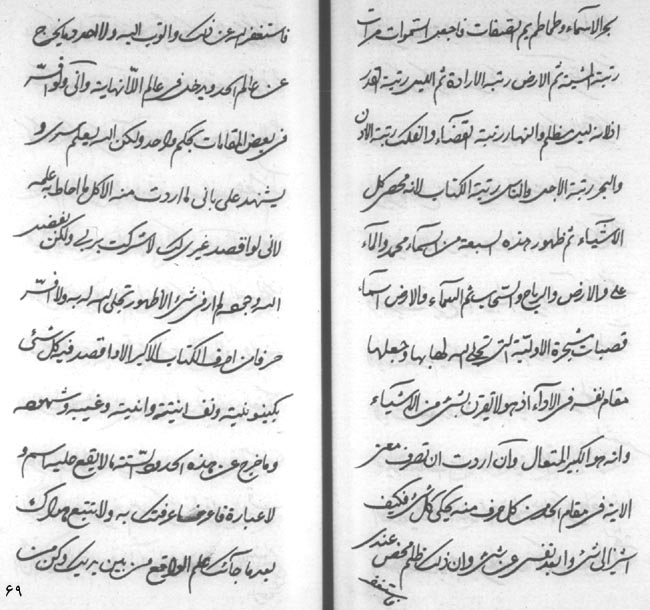 بحر الاسماء وطماطم يم الصفات فاجعل السموات مراتب
رتبة المشية ثم الارض رتبة الارادة ثم الليل رتبة القدر
اذ انه ليل مظلم والنهار رتبة القضاء والفلك رتبة الاذن
والبحر رتبة الاجل والناس رتبة الكتاب لانه محصى كل
الاشياء ثم ظهور هذه السبعة من السماء محمد والماء
علي والارض والرياح والسحاب ثم السماء والارض اسماء
قصبات شجرة الاولية التي تجلى الله لها بها وجعلها
مقام نفسه في الاداء اذ هو لا يقرن بشئ من الاشياء
وانه هو الكبير المتعال وان اردت ان تعرف معنى
الاية في مقام كل حرف منه يحكي كل شئ فكيف
اشير الى شئ وابعد نفسي عن شئ وان ذلك ظلم محض عندي
فاستغفر
فاستغفر الله عن ذلك واتوب اليه ولا احد وما يخرج
عن عالم الحد ويدخل في عالم اللانهاية واني ولو افسر
في بعض المقامات بحكم واحد ولكن الله يعلم سري و
يشهد علي باني ما اردت منه الا كل ما احاط به علمه
لاني لو اقصد غير ذلك لاشركت بربي ولكن بفضل
الله وجوده لم ار في شئ الا ظهور تجلي الله له به ولا افسر
حرفا من احرف الكتاب الاكبر الا واقصد فيه كل شئ
بكينونيته ونفسانيته وانيته وغيبه وشهوده
وما خرج عن هذه الحدود الستة ما لا يقع عليه اسم و
لا عبارة فاعرف ما عرفتك به ولا تتبع هواك
بعد ما جائك علم الواقع من بين يديك وكن من
٦٩